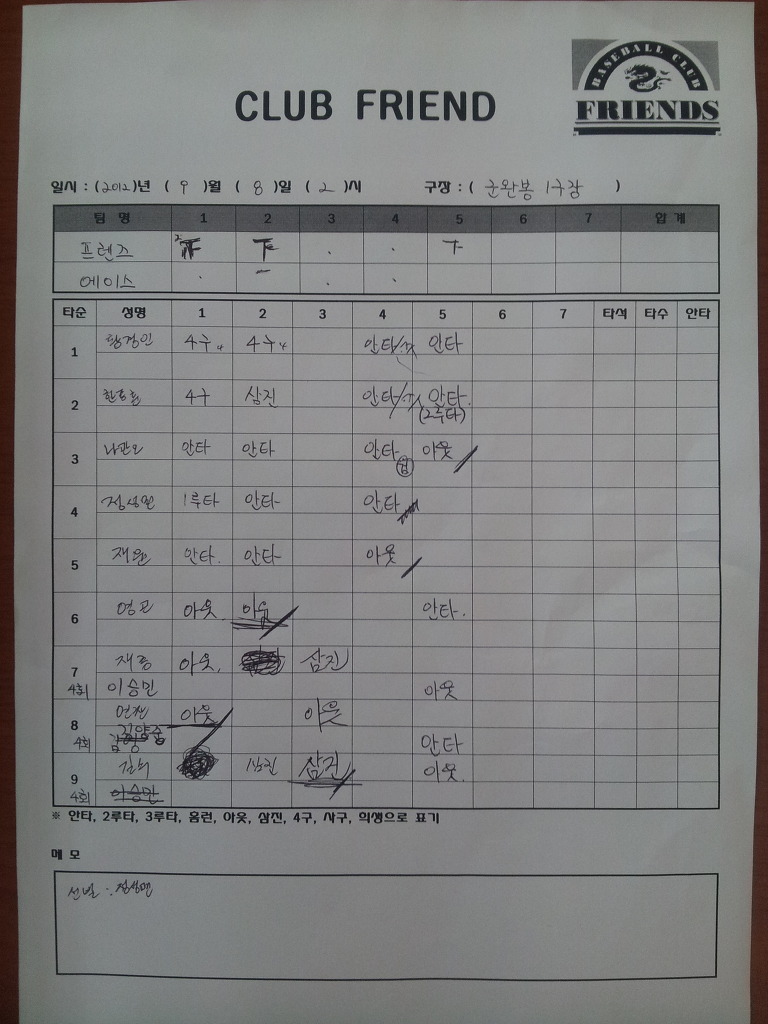 BASEBALL CLUB
FRIENDS
CLUB FRIEND
일시 : (2012)년 ( 9 )월 ( 8 )일 ( 2 )시 구장 : ( 군완봉 1구장 )
팀 명 1 2 3 4 5 6 7 합 계
프렌즈 . .
에이스 . - . .
타순 성명 1 2 3 4 5 6 7 타석 타수 안타
1 4구 4구 안타 안타
2 4구 삼진 안타 안타.
(2루타)
3 안타 안타 안타 아웃
4 정성면 1루타 안타 안타
5 재원 안타. 안타 아웃
6 영고 아웃. 아웃 안타.
7 재흥 아웃. 삼진
4회 이승민 아웃
8 아웃 아웃
4회 안타
9 삼진 삼진 아웃.
4회 이승민
※ 안타, 2루타, 3루타, 홈런, 아웃, 삼진, 4구, 사구, 희생으로 표기
메 모
선발 : 정성면